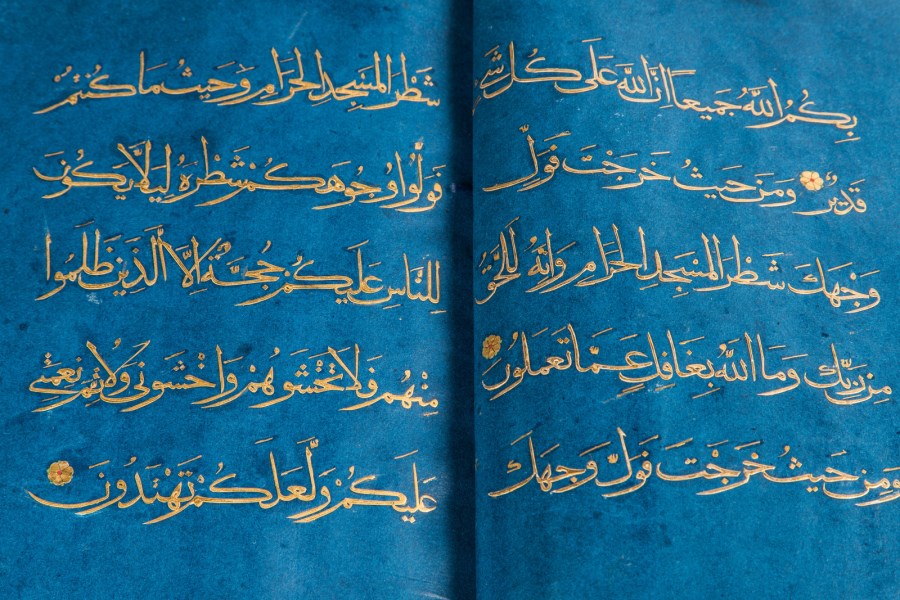 بِكُمُ اللَّهُ جَمِيعًا إِنَّ اللَّهَ عَلَى كُلِّ شَيْ
قَدِيرٌ وَمِنْ حَيْثُ خَرَجْتَ فَوَلِّ
وَجْهَكَ شَطْرَ الْمَسْجِدِ الْحَرَامِ وَإِنَّهُ لَلْحَقُّ
مِنْ رَبِّكَ وَمَا اللَّهُ بِغَافِلٍ عَمَّا تَعْمَلُونَ
وَمِنْ حَيْثُ خَرَجْتَ فَوَلِّ وَجْهَكَ
شَطْرَ الْمَسْجِدِ الْحَرَامِ وَحَيْثُ مَا كُنْتُمْ
فَوَلُّوا وُجُوهَكُمْ شَطْرَهُ لِيَلَّا يَكُونَ
لِلنَّاسِ عَلَيْكُمْ حُجَّةٌ إِلَّا الَّذِينَ ظَلَمُوا
مِنْهُمْ فَلَا تَخْشَوْهُمْ وَاخْشَوْنِي وَلِأُتِمَّ نِعْمَتِي
عَلَيْكُمْ وَلَعَلَّكُمْ تَهْتَدُونَ